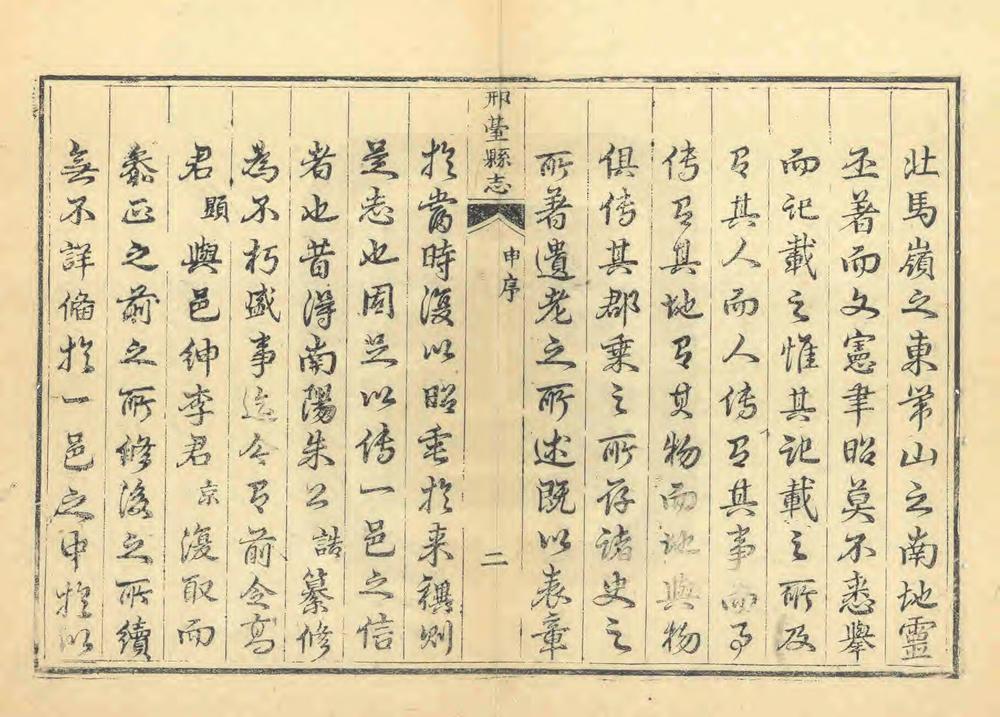 壯馬嶺之東常山之南地靈
丕著而文憲聿昭莫不悉舉
而記載之惟其記載之所及
有其人而人傳有其事而事
傳有其地有其物而地與物
俱傳其郡乘之所存諸史之
所著遺老之所述既以表章
邢臺縣志
申序
二
於當時復以昭垂於来禩則
是志也固足以傳一邑之信
者也昔得南陽朱公誥纂修
為不朽盛事迄今有前令高
君顯與邑紳李君京復取而
叅正之前之所修後之所續
無不詳備於一邑之中於以